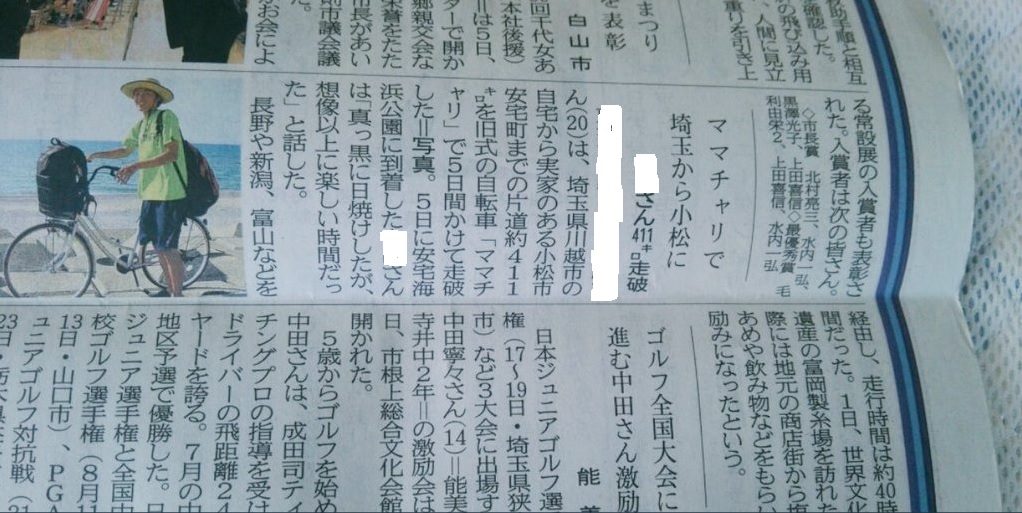 助手順と相互
確認した。
の飛び込み用
、人間に見立
重りを引き上
まつり
を表彰
白山市
回千代女あ
本社後援)
＝は５日、
ターで開か
郷親交会な
栄誉をたた
市長があい
則市議会議
お会によ
る常設展の入賞者も表彰さ
れた。入賞者は次の皆さん。
◇市長賞 北村亮三、水内一弘、
黒澤光子、上田喜信◇最優秀賞 毛
利由栄2、上田喜信、水内一弘
ママチャリで
埼玉から小松に
さん411㌔走破
ん(20)は、埼玉県川越市の
自宅から実家のある小松市
安宅町までの片道約４１１
㌔を旧式の自転車「ママチ
ャリ」で５日間かけて走破
した＝写真。５日に安宅海
浜公園に到着した
さん
は「真っ黒に日焼けしたが、
想像以上に楽しい時間だっ
た」と話した。
長野や新潟、富山などを
経由し、走行時間は約40時
間だった。１日、世界文化
遺産の富岡製糸場を訪れた
際には地元の商店街から塩
あめや飲み物などをもらい
励みになったという。
ゴルフ全国大会に
進む中田さん激励
能美
日本ジュニアゴルフ選
権（17～19日・埼玉県狭
市）など３大会に出場す
中田寧々さん(14)＝能美
寺井中２年＝の激励会は
日、市根上総合文化会館
開かれた。
５歳からゴルフを始め
中田さんは、成田司ティ
チングプロの指導を受け
ドライバーの飛距離２４
ヤードを誇る。７月の中
地区予選で優勝した。日
ジュニア選手権と全国中
校ゴルフ選手権（８月11
13日・山口市）、ＰＧＡ
ュニアゴルフ対抗戦（21
23日・栃木県